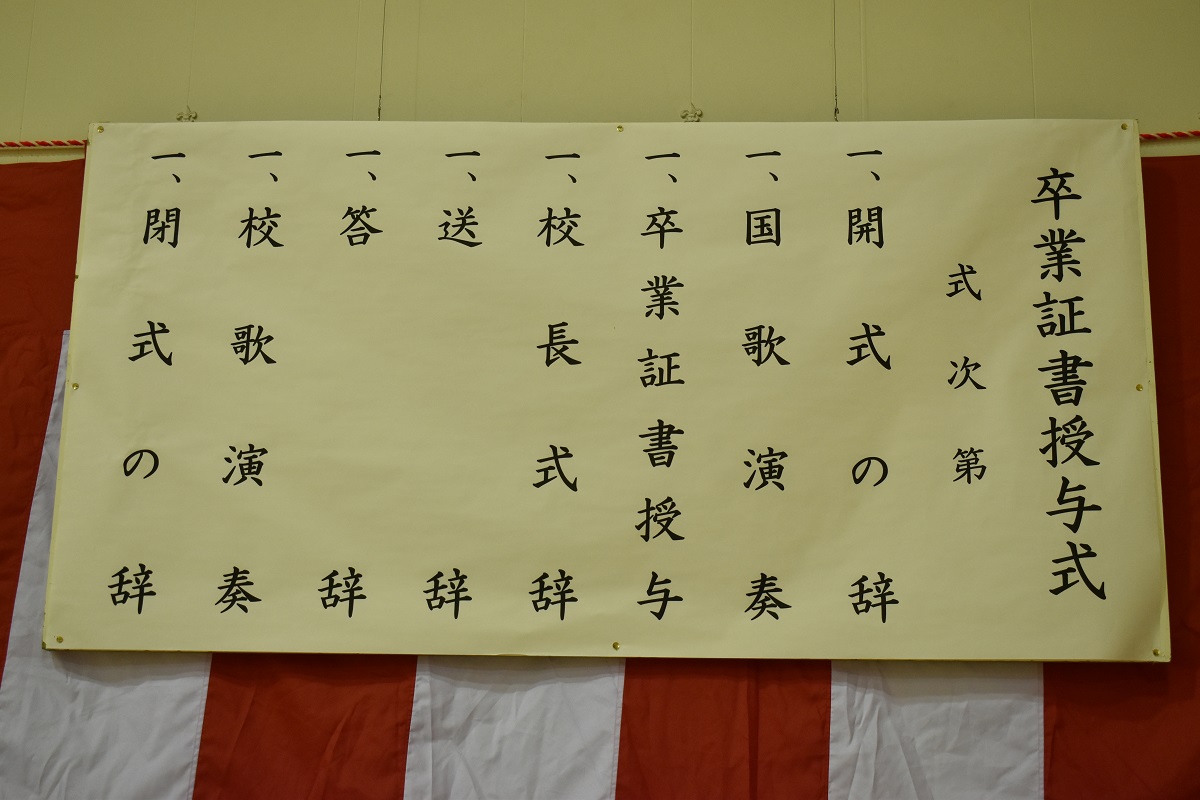 卒業証書授与式
式次第
一、開式の辞
一、国歌演奏
一、卒業証書授与
一、校長式辞
一、送辞
一、答辞
一、校歌演奏
一、閉式の辞